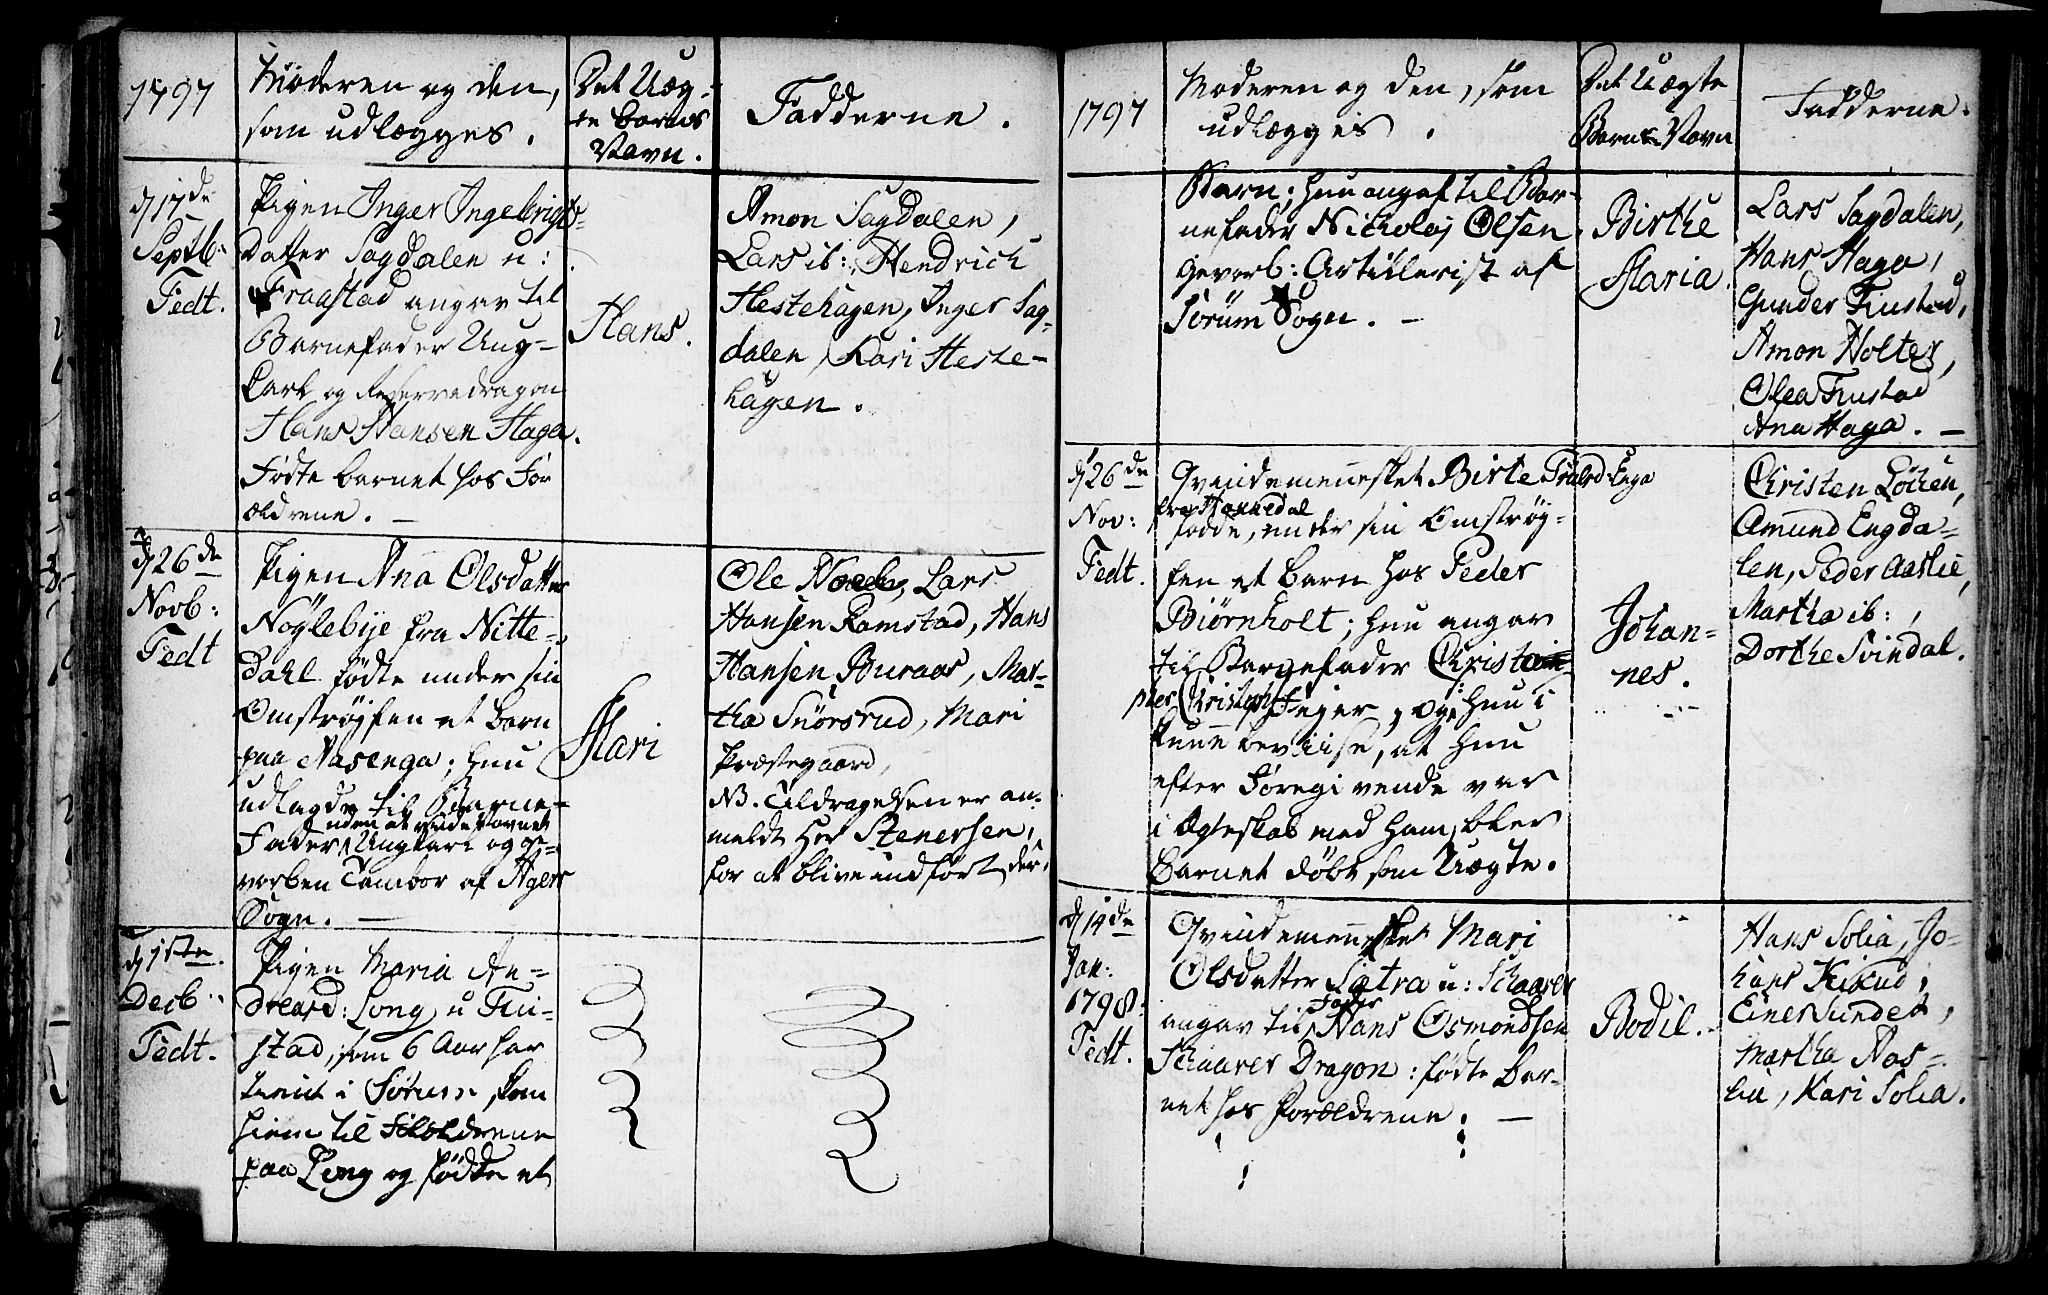 1797
Moderen og den,
som udlægges.
Det Uæg-
te Barns
Navn.
Fadderne.
d 17de
Septb:
Fedt.
Pigen Inger Ingebrigts-
Datter Sagdalen u:
Fragstad angav til
Barnefader Ung-
karl og Reservedragon
Hans Hansen Haga.
Fødte barnet hos For
ældrene. —
Hans.
Amon Sagdalen,
Lars ib:, Hendrich
Hestehagen, Inger Sag-
dalen, Kari Heste-
hagen.
d 26de
Novb:
Fedt
Pigen Ana Olsdatter
Nöglebÿe fra Nitte-
dahl fødte under sin
Omstrøjfen et barn
paa Aasenga; hun
udlagde til Barne-
uden at vide Navnet
Fader Ungkarl og ge-
vorben Tambor af Agers
Sogn. —
Mari
Ole, Lars
Hansen Ramstad, Hans
Hansen Buraas, Mar-
tha Snörsrud, Mari
Præstegaard,
NB. Tildragelsen er an-
meldt Hr Stenersen,
for at blive indført der.
d 1ste
Decb:
Fedt.
Pigen Maria An-
dreasd: Long u Fru-
stad, som 6 Aar har
tient i Sørum, kom
hiem til Forældrene
paa Leng og fødte et
1797
Moderen og den, som
udlægges.
Det Uægte
Barns Navn
Fadderne.
Barn; hun angaf til Bar-
nefader Nicholaj Olsen
Gevorb: Artillerist af
Sörum Sogn. —
Birthe
Maria.
Lars Sagdalen,
Hans Haga,
Gunder Frustad,
Amon Holter,
Olea Frustad
Ana Haga. —
d 26de
Nov:
Fedt.
Qvindemennesket Birte
fra
fødde, under sin Omstrøj-
fen et barn hos Peder
Biørnholt; hun angav
til Barnefader
Christoph
Jeger, og hun i
kune beviise, at hun
efter Foregivende var
i Ægteskab med ham, blev
Barnet døbt som Uægte.
Johan-
nes.
Christen Löken,
Amund Engda-
len, Peder Aaslie,
Martha ib:,
Dorthe Svindal.
d 14de
Jan:
1798.
Fedt.
Qvindemennesket Mari
Olsdatter Sætra u: Schaarer
angav til Fader Hans Osmondsen
Schaarer Dragon: fødte Bar-
net hos Forældrene. —
Bodil.
Hans Solia, Jo-
hans,
Einer Sundet,
Martha Aas-
lie, Kari Solia.